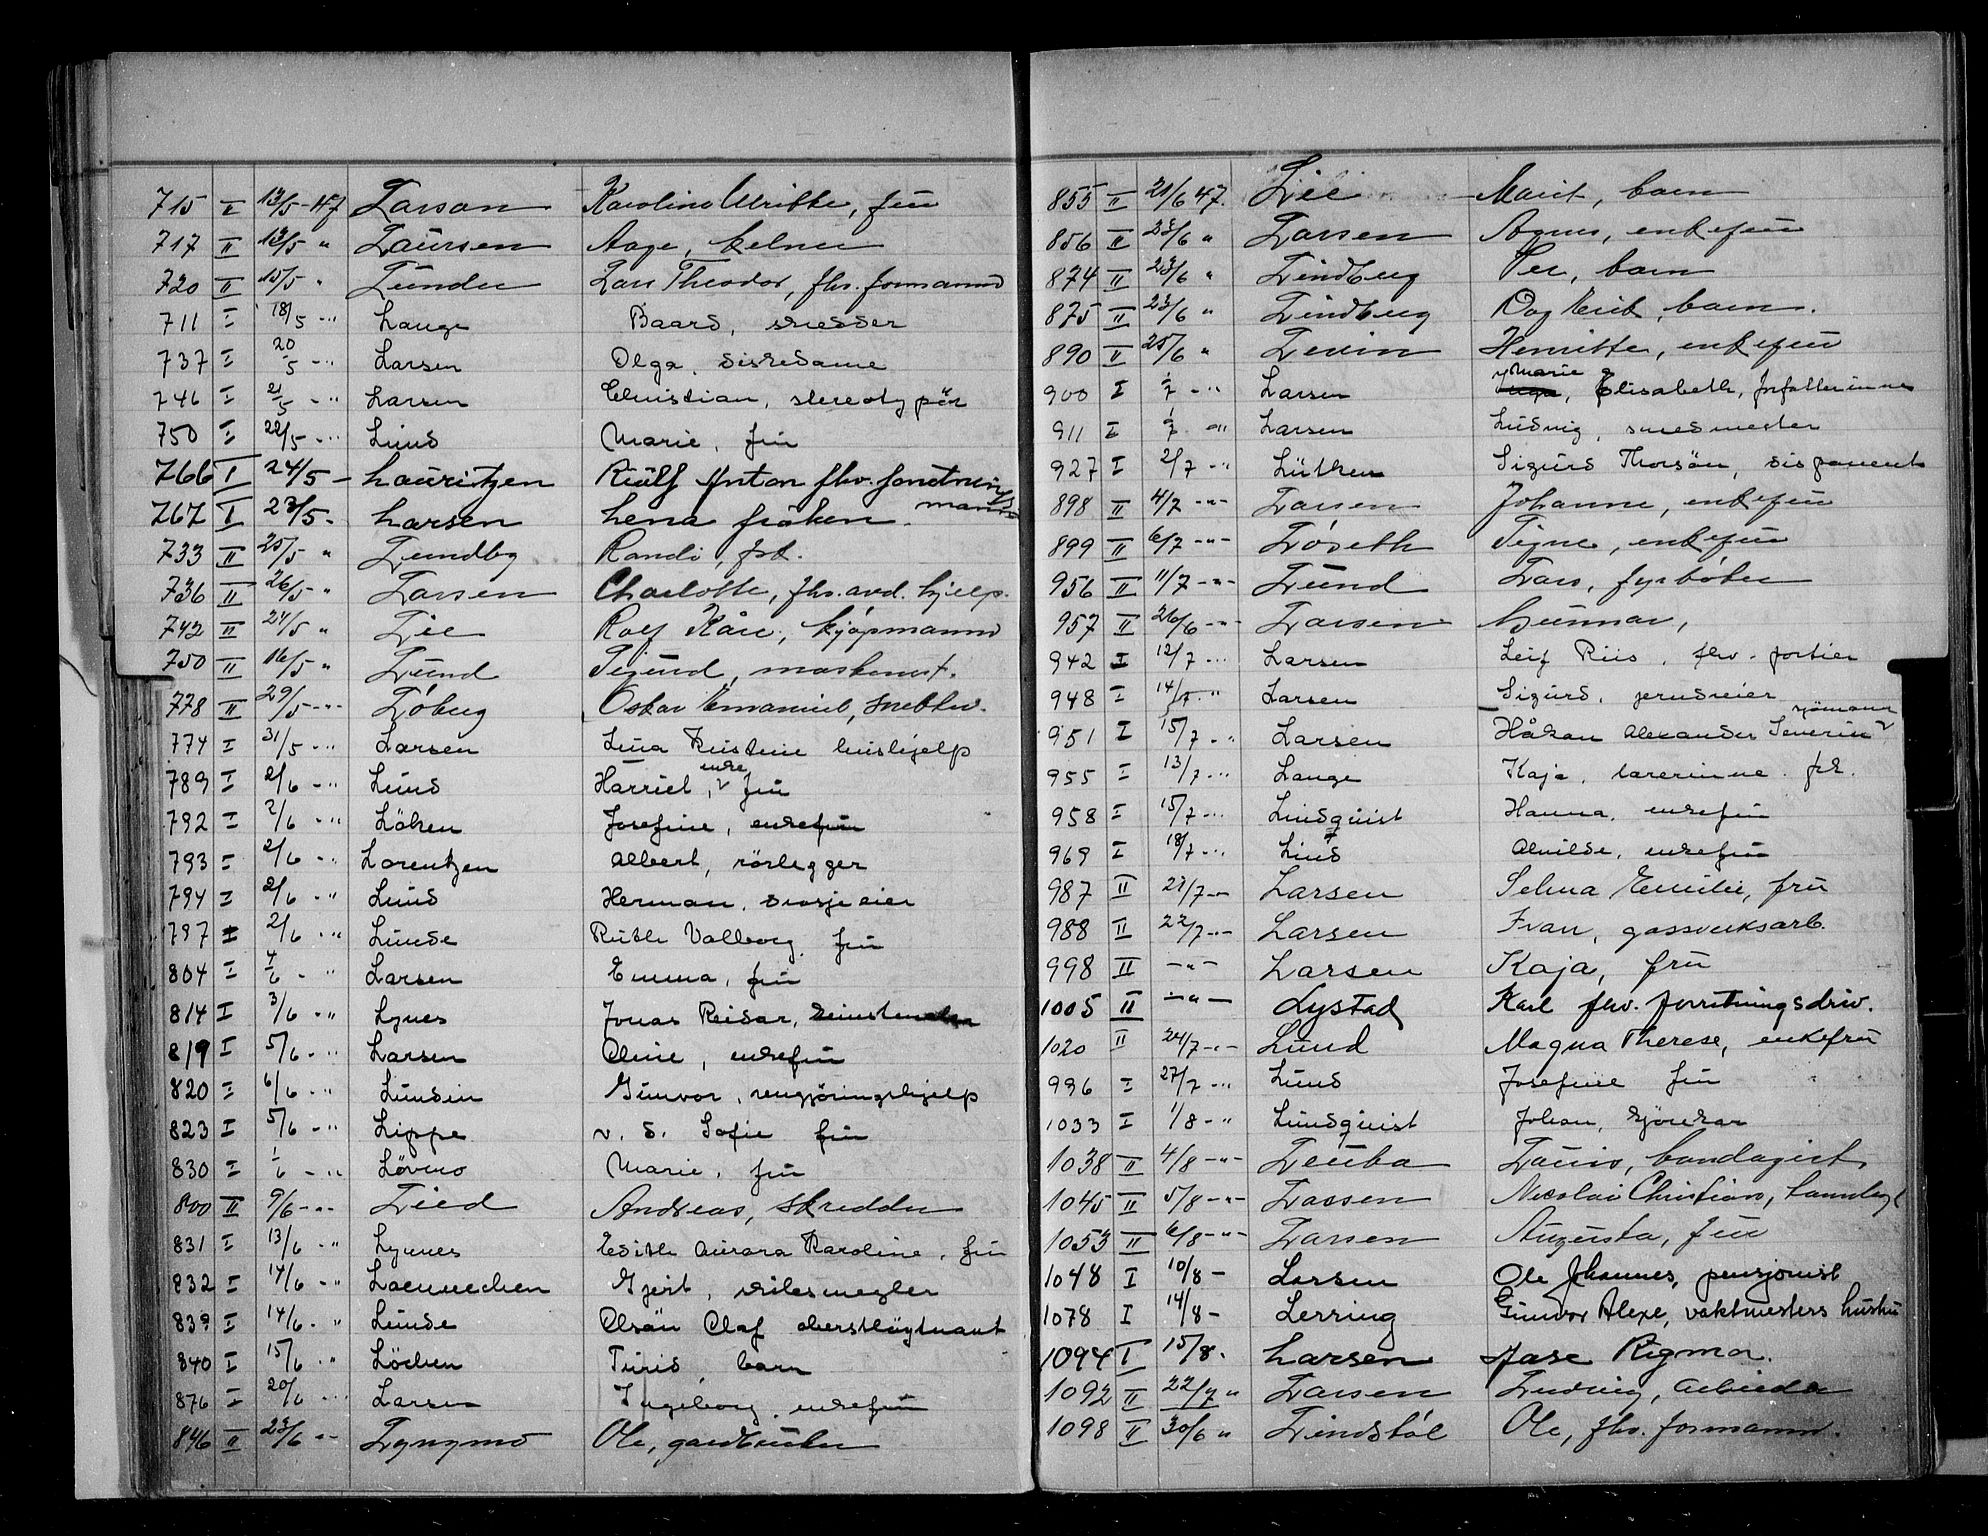 715 I 13/5-47 Larsen Karoline Ulrikke, fru
717 II 13/5 " Laursen Aage, kelner
720 II 15/5 " Lunder Lars Theodor, fhv. formannd
711 I 18/5 -" Lange Baard, skredder
737 I 20/5 -" Larsen Olga, diskedame
746 I 21/5 -" Larsen Christian, stereotypör
750 I 22/5 -" Lund Marie, fru
766 I 24/5 - Lauritzen Rulf Anton fhv. forretnings mann
767 I 23/5 - Larsen Lena fröken
733 II 25/5 " Lundby Randi, frk.
736 II 26/5 " Larsen Charlotte, fhv. avd. hjelp.
742 II 24/5 " Lie Rolf Kåre, kjøpmannd
750 II 16/5 " Lund Sigurd, maskinist.
778 II 29/5 -"- Løberg Oskar Emanuel, snekker.
774 I 31/5 -" Larsen Lina Kristine hushjelp
789 I 2/6 -" Lund Harriet, enke fru
792 I 2/6 -" Löken Josefine, enkefru
793 I 2/6 -" Lorentzen Albert, rörlegger
794 I 2/6 -" Lund Herman, drosjeeier
797 I 2/6 -" Lunde Ruth Valborg fru
804 I 4/6 -" Larsen Emma, fru
814 I 3/6 -" Lynes Jonas Reidar,
819 I 5/6 -" Larsen Oline, enkefru
820 I 6/6 -" Lundin Gunvor, rengjöringshjelp
823 I 5/6 -" Lippe v. d. Sofie fru
830 I 1/6 -" Løvmo Marie, fru
800 II 9/6 -"- Lied Andreas, skredder
831 I 13/6 -" Lynes Edith Aurora Karoline, fru
832 I 14/6 -" Laennechen Gjert, skibsmegler
839 I 14/6 -" Lunde Olsön Olaf oberstlöytnant
840 I 15/6 -" Löchen Turid, barn
876 I 20/6 -" Larsen Ingeborg, enkefru
846 II 23/6 -"- Lyngmo Ole, gaardbruker
855 II 21/6 47. Lie Marit, barn
856 II 23/6 " Larsen Agnes, enkefru
874 II 23/6 " Lindberg Per, barn
875 II 23/6 " Lindberg Dag Erik, barn.
890 II 25/6 " Levin Henriette, enkefru
900 I 1/7 -" Larsen Marie Elisabeth, forfatterinne
911 I 1/7 -" Larsen Ludvig, smedmester
927 I 2/7 -" Lütken Sigurd Thorsön, disponent
898 II 4/7 -"- Larsen Johanne, enkefru
899 II 6/7 -"- Løseth Signe, enkefru
956 II 11/7 -"- Lund Lars, fyrbøter
957 II 26/6 -"- Larsen Gunnar,
942 I 12/7 -" Larsen Leif Riis, fhv. portier
948 I 14/7 -" Larsen Sigurd, grudseier
951 I 15/7 -" Larsen Håkon Alexander Severin sjömann
955 I 13/7 -" Lange Kaja, lærerinne. frk.
958 I 15/7 -" Lindquist Hanna, enkefru
969 I 18/7 -" Lind Alvilde, enkefru
987 II 21/7 -"- Larsen Selma Emilie, fru
988 II 22/7 -"- Larsen Ivar, gassverksarb.
998 II -"- Larsen Kaja, fru
1005 II -"- Lystad Karl fhv. forretningsdriv.
1020 II 24/7 -"- Lund Magna Therese, enkefru
996 I 27/7 -" Lund Josefine fru
1033 I 1/8 -" Lundquist Johan, sjönkar
1038 II 4/8 -"- Leuba Louis, bandagist
1045 II 5/8 -"- Lassen Nicolai Christian, tannlege
1053 II 6/8 -"- Larsen Augusta, fru
1048 I 10/8 - Larsen Ole Johannes, pensjonist
1078 I 14/8 - Lerring Gunvor Alexe, vaktmesters hustru
1094 I 15/8 - Larsen Aase Rigmor.
1092 II 22/7 " Larsen Ludvig, arbeider
1098 II 30/6 " Lindstøl Ole, fhv. formann.